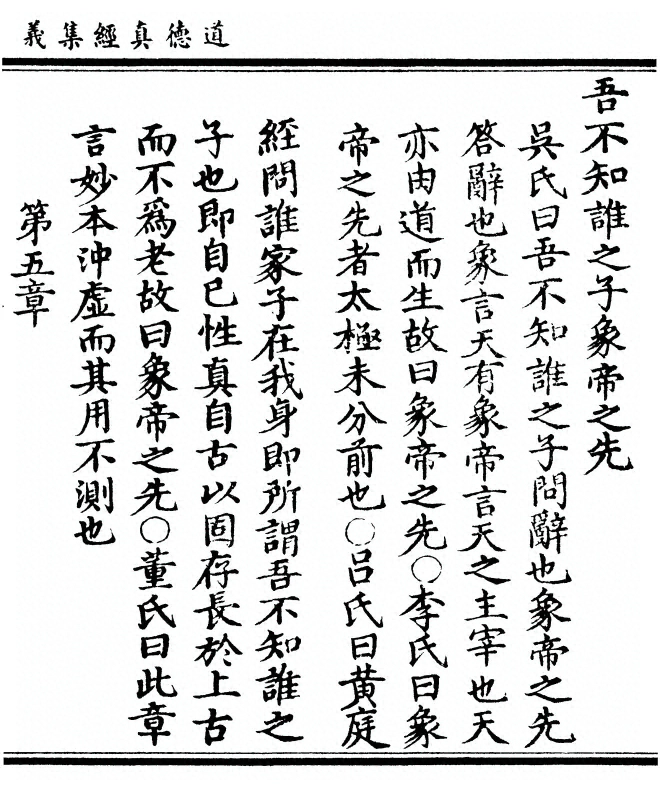 道德真經集義
吾不知誰之子象帝之先
吳氏曰吾不知誰之子問辭也象帝之先
答辭也象言天有象帝言天之主宰也天
亦由道而生故曰象帝之先○李氏曰象
帝之先者太極未分前也○呂氏曰黄庭
經問誰家子在我身即所謂吾不知誰之
子也即自己性真自古以固存長於上古
而不爲老故曰象帝之先○董氏曰此章
言妙本沖虛而其用不測也
第五章